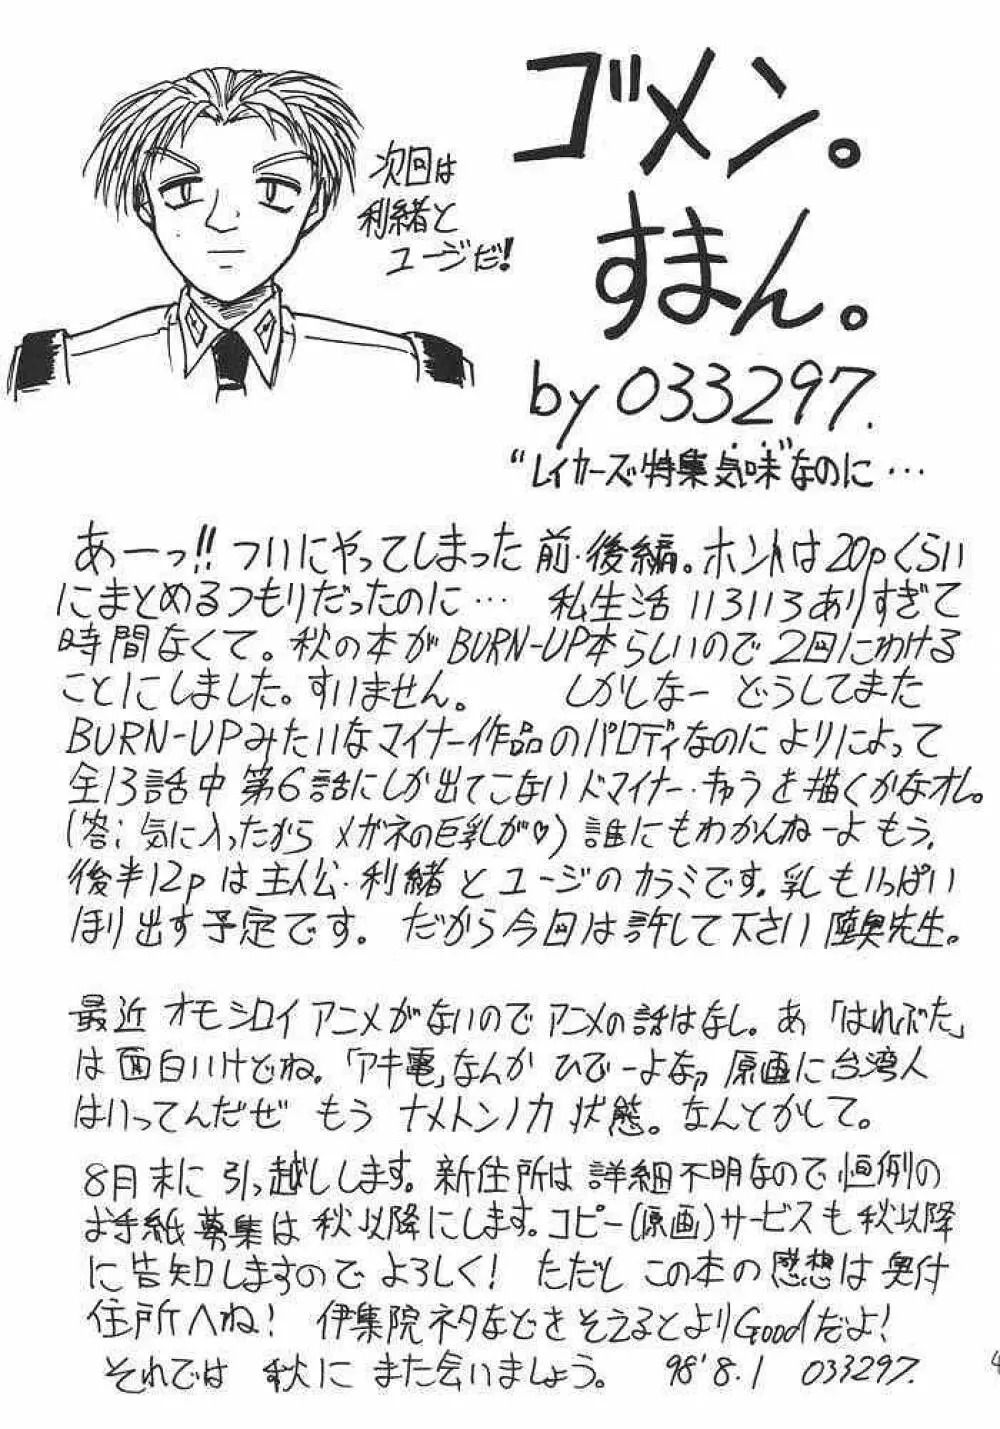 ゴメン。
すまん。
次回は
利緒と
ユージだ!
by 033297.
“レイカーズ特集気味”なのに…
あーっ!!ついにやってしまった前・後編。ホントは20pくらい
にまとめるつもりだったのに… 私生活113113ありすぎて
時間なくて。秋の本がBURN-UP本らしいので2回にわける
ことにしました。すいません。 しかしなー どうしてまた
BURN-UPみたいなマイナー作品のパロディなのによりによって
全13話中第6話にしか出てこないドマイナー・キャラを描くかなオレ。
(答;気に入ったから メガネの巨乳が♡)誰にもわかんねーよもう。
後半12pは主人公・利緒とユージのカラミです。乳もいっぱい
ほり出す予定です。 だから今回は許して下さい 陸奥先生。
最近 オモシロイアニメがないのでアニメの話はなし。あ「はれぶた」
は面白いけどね。「アキ電」なんか ひでーよなァ 原画に台湾人
はいってんだぜ もう ナメトンノカ状態。なんとかして。
8月末に引っ越しします。新住所は詳細不明なので恒例の
お手紙募集は秋以降にします。コピー(原画)サービスも秋以降
に告知しますのでよろしく! ただし この本の感想は奥付
住所へね! 伊集院ネタなどをそえるとよりGoodだよ!
それでは 秋に また会いましょう。 98'8.1 033297.